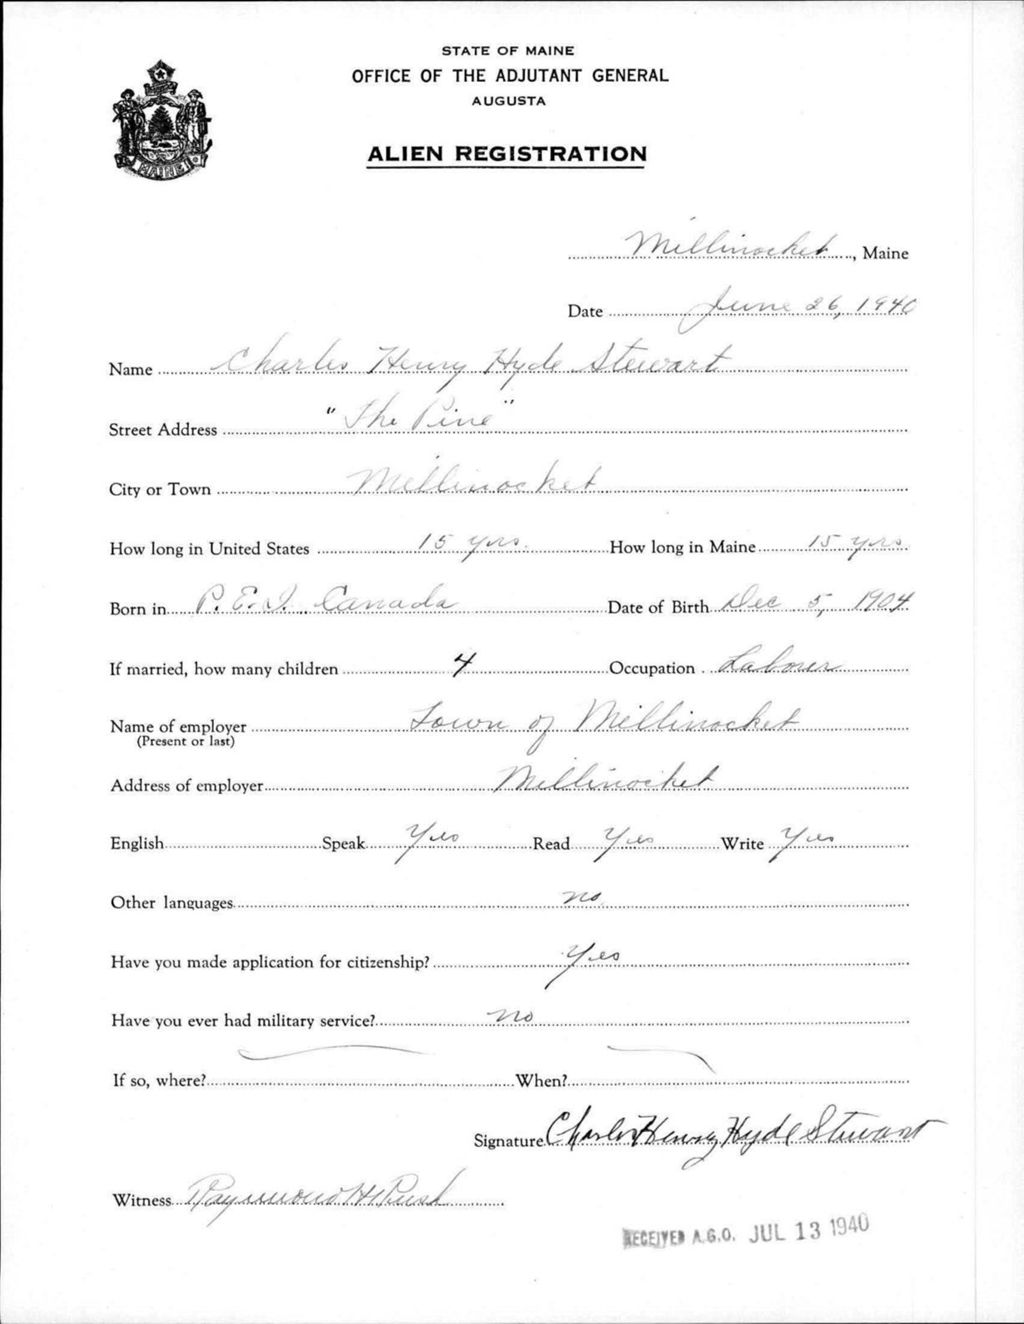 STATE OF MAINE
OFFICE OF THE ADJUTANT GENERAL
AUGUSTA
ALIEN REGISTRATION
MAINE
Millinocket, Maine
Date June 26, 1940
Name Charles Henry Hyde Stewart
Street Address "The Pine"
City or Town Millinocket
How long in United States 15 yrs. How long in Maine 15 yrs.
Born in P.E.I. Canada Date of Birth Dec 5, 1904
If married, how many children 4 Occupation Laborer
Name of employer Town of Millinocket
(Present or last)
Address of employer Millinocket
English Speak Yes Read Yes Write Yes
Other languages no
Have you made application for citizenship? Yes
Have you ever had military service? no
If so, where? When?
Signature Charles Henry Hyde Stewart
Witness Raymond H. Rush
RECEIVED A.G.O. JUL 13 1940